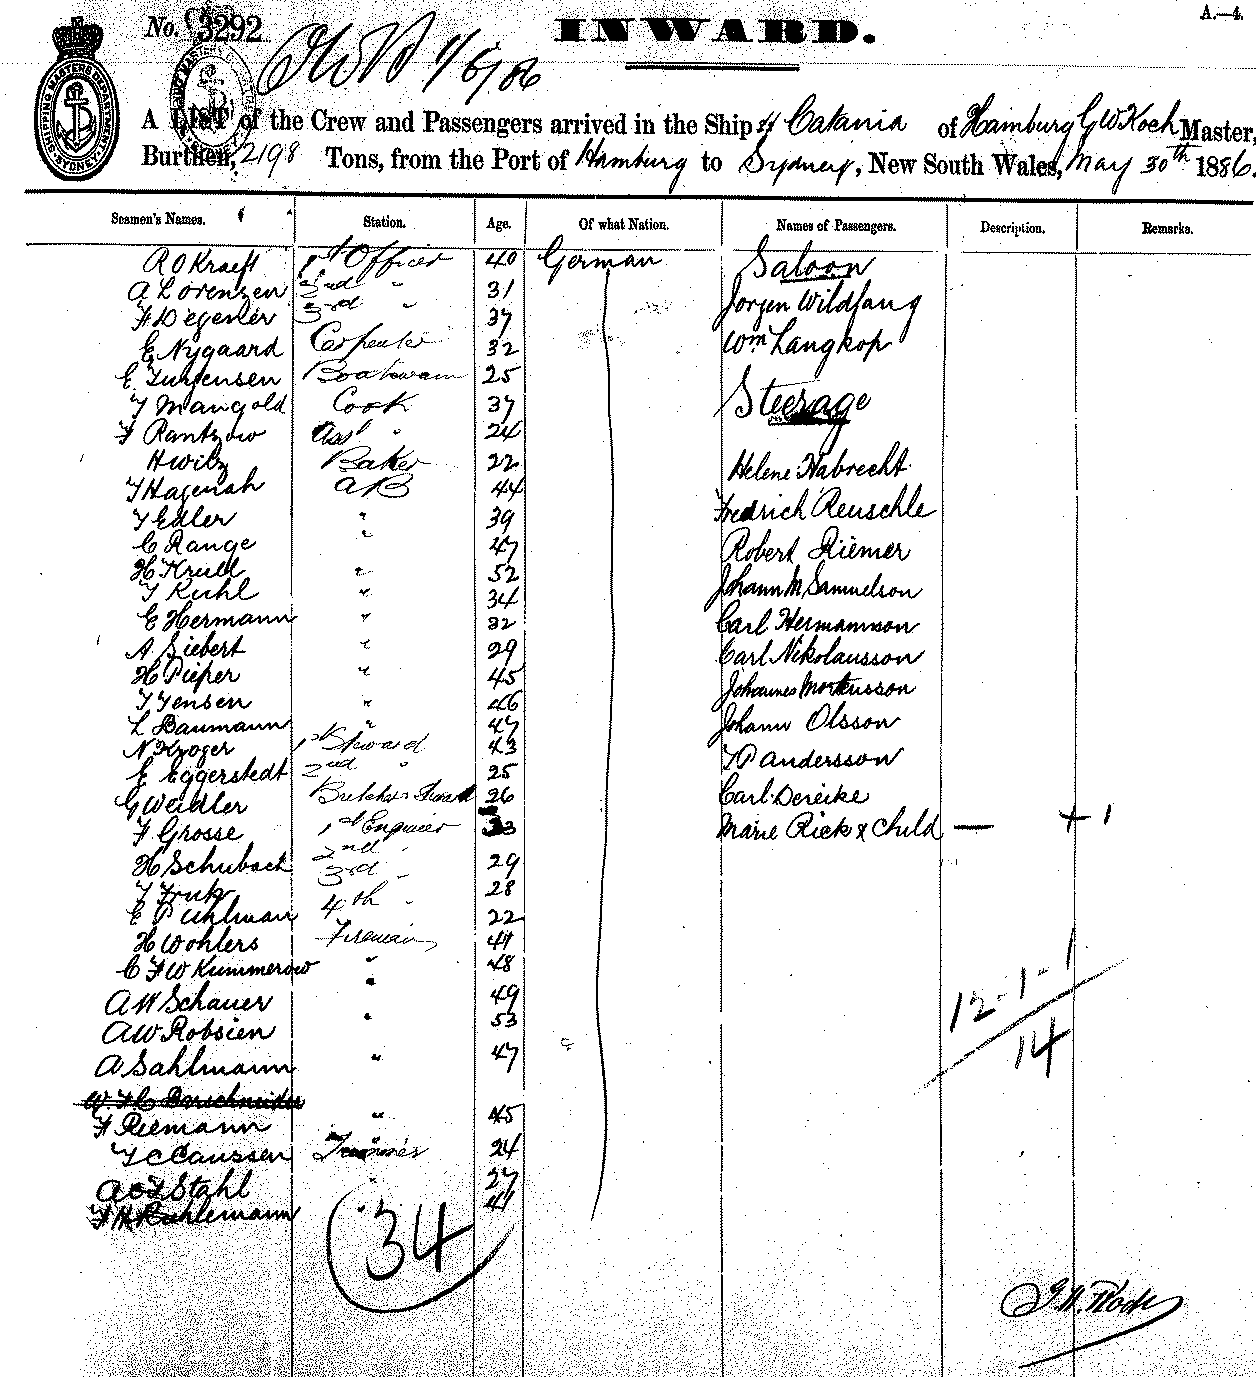 No. 3292
INWARD.
A.—4.
1/6/86
SHIPPING MASTER'S DEPARTMENT SYDNEY
A LIST of the Crew and Passengers arrived in the Ship Catania of Hamburg G W Koch Master,
Burthen, 2198 Tons, from the Port of Hamburg to Sydney, New South Wales, May 30th 1886.
Seamen's Names. Station. Age. Of what Nation. Names of Passengers. Description. Remarks.
R O Kraeft 1st Officer 40 German Saloon
A Lorenzen 2nd " 31 Jorgen Wildfang
F Degener 3rd " 37
E Nygaard Carpenter 32 Wm Langkop
E Jurgensen Boatswain 25
J Mangold Cook 37 Steerage
F Rantzow Asst " 24
H Wilz Baker 22 Helene Habrecht
J Hagenah AB 44 Fredrich Reuschle
J Edler " 39
C Range " 47 Robert Riemer
H Krull " 52
J Kuhl " 34 Johann M Samuelson
E Hermann " 32 Carl Hermannson
A Siebert " 29 Carl Nikolausson
H Pieper " 45
J Jensen " 46 Johannes Mortensson
L Baumann " 47 Johann Olsson
N Kroger 1st Steward 43
E Eggerstedt 2nd " 25 J P Andersson
G Weidler Butcher & Steward 26 Carl Dereike
F Grosse 1st Engineer 33 Marie Rick & Child — + 1
H Schubach 2nd " 29
3rd " 28
E Puhlman 4th " 22
H Wohlers Fireman 41
C F W Kummerow " 48
A W Schauer " 49
A W Robsien " 53
A Sahlmann " 47
12-1-1
14
W. F. C. Borschneider
F Riemann " 45
J C Caussen Trimmer 24
A C F Stahl " 27
F H Ruhlemann " 41
34
G. W. Koch